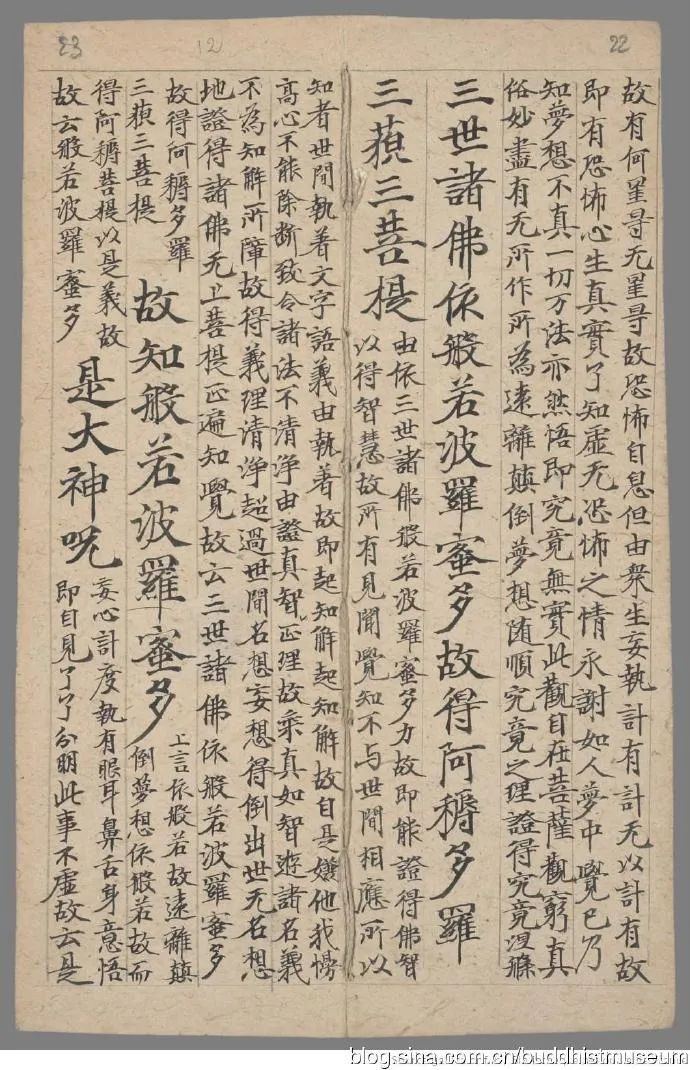 23
12
22
故有何罣㝵无罣㝵故恐怖自息但由衆生妄執計有計无以計有故
即有恐怖心生真實了知虛无恐怖之情永謝如人夢中覺已乃
知夢想不真一切万法亦然悟即究竟無實此觀自在菩薩觀窮真
俗妙盡有无所作所為遠離顛倒夢想随順究竟之理證得究竟涅槃
三世諸佛依般若波羅蜜多故得阿耨多羅
三藐三菩提
由依三世諸佛般若波羅蜜多力故即能證得佛智
以得智慧故所有見聞覺知不与世間相應所以
知者世間執着文字語義由執着故即起知解起知解故自是嫌他我慢
高心不能除断致令諸法不清淨由證真智正理故乘真如智遊諸名義
不為知解所障故得義理清淨超過世間名想妄想得倒出世无名想
地證得諸佛无上菩提正遍知覺故云三世諸佛依般若波羅蜜多
故得阿耨多羅
三藐三菩提
故知般若波羅蜜多
上言依般若故遠離顛
倒夢想依般若故而
得阿耨菩提以是義故
故云般若波羅蜜多
是大神呪
妄心計度執有眼耳鼻舌身意悟
即自見了了分明此事不虛故云是
blog.sina.com.cn/buddhistmuseum